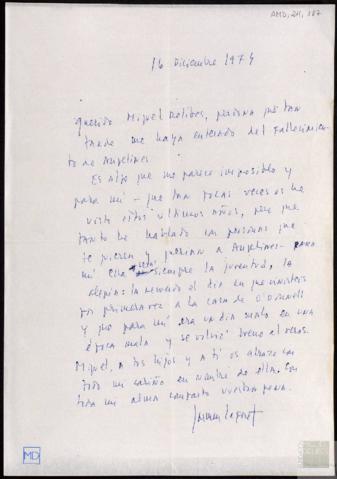 AMD, 24, 187
16 Diciembre 1974
Querido Miguel Delibes, perdona que tan
tarde me haya enterado del fallecimien-
to de Angelines
Es algo que me parece imposible y
para mí – que tan pocas veces os he
visto estos últimos años, pero que
tanto he hablado con personas que
te quieren y querían a Angelines – para
mí ella será siempre la juventud, la
alegría: la recuerdo el día en que vinisteis
por primera vez a la casa de O'Donnell
y que para mí era un día malo en una
época mala y se volvió bueno al veros.
Miguel, a tus hijos y a ti os abrazo con
todo mi cariño en nombre de ella. Con
toda mi alma comparto vuestra pena.
Carmen Laforet
MD